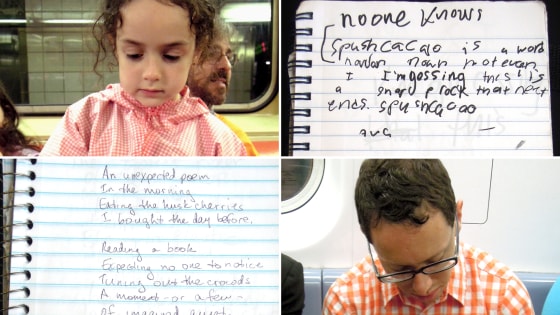 noone knows
spushcacao is a word
nown not even
I I'm gossing this is
a that nevr
ends. spushcacao
ava
An unexpected poem
In the morning
Eating the husk cherries
I bought the day before.
Reading a book
Expecting no one to notice
Tuning out the crowds
A moment - or a few -
of imagined quiet